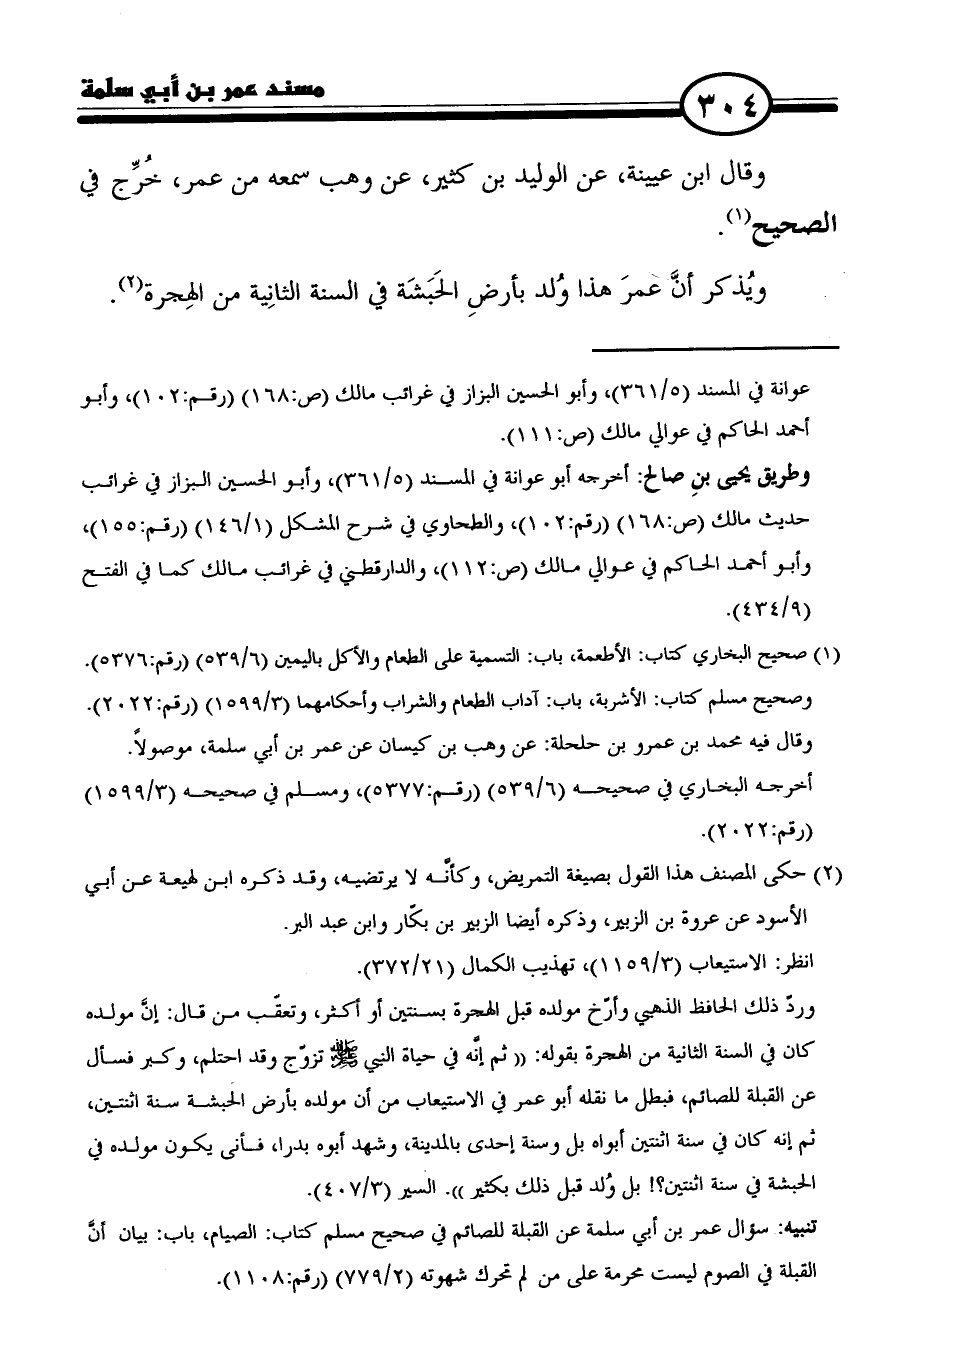 مسند عمر بن أبي سلمة
٣٠٤
وقال ابن عيينة، عن الوليد بن كثير، عن وهب سمعه من عمر، خُرِّج في
الصحيح(١).
ويُذكر أنَّ عمرَ هذا وُلد بأرضِ الحَبَشَة في السنة الثانِية من الهِجرة(٢).
عوانة في المسند (٣٦١/٥)، وأبو الحسين البزاز في غرائب مالك (ص:١٦٨) (رقم:١٠٢)، وأبو
أحمد الحاكم في عوالي مالك (ص:١١١).
وطريق يحيى بنِ صالح: أخرجه أبو عوانة في المسند (٣٦١/٥)، وأبو الحسين البزاز في غرائب
حديث مالك (ص:١٦٨) (رقم:١٠٢)، والطحاوي في شرح المشكل (١٤٦/١) (رقم:١٥٥)،
وأبو أحمد الحاكم في عوالي مالك (ص:١١٢)، والدارقطني في غرائب مالك كما في الفتح
(٤٣٤/٩).
(١) صحيح البخاري كتاب: الأطعمة، باب: التسمية على الطعام والأكل باليمين (٥٣٩/٦) (رقم:٥٣٧٦).
وصحيح مسلم كتاب: الأشربة، باب: آداب الطعام والشراب وأحكامهما (١٥٩٩/٣) (رقم:٢٠٢٢).
وقال فيه محمد بن عمرو بن حلحلة: عن وهب بن كيسان عن عمر بن أبي سلمة، موصولاً.
أخرجه البخاري في صحيحه (٥٣٩/٦) (رقم:٥٣٧٧)، ومسلم في صحيحه (١٥٩٩/٣)
(رقم:٢٠٢٢).
(٢) حكى المصنف هذا القول بصيغة التمريض، وكأنَّه لا يرتضيه، وقد ذكره ابن لهيعة عن أبي
الأسود عن عروة بن الزبير، وذكره أيضا الزبير بن بكّار وابن عبد البر.
انظر: الاستيعاب (١١٥٩/٣)، تهذيب الكمال (٣٧٢/٢١).
وردّ ذلك الحافظ الذهبي وأرّخ مولده قبل الهجرة بسنتين أو أكثر، وتعقّب من قال: إنَّ مولده
كان في السنة الثانية من الهجرة بقوله: (( ثم إنَّه في حياة النبي ﷺ تزوّج وقد احتلم، وكبر فسأل
عن القبلة للصائم، فبطل ما نقله أبو عمر في الاستيعاب من أن مولده بأرض الحبشة سنة اثنتين،
ثم إنه كان في سنة اثنتين أبواه بل وسنة إحدى بالمدينة، وشهد أبوه بدرا، فأنى يكون مولده في
الحبشة في سنة اثنتين؟! بل وُلد قبل ذلك بكثير )). السير (٤٠٧/٣).
تنبيه: سؤال عمر بن أبي سلمة عن القبلة للصائم في صحيح مسلم كتاب: الصيام، باب: بيان أنَّ
القبلة في الصوم ليست محرمة على من لم تحرك شهوته (٧٧٩/٢) (رقم:١١٠٨).